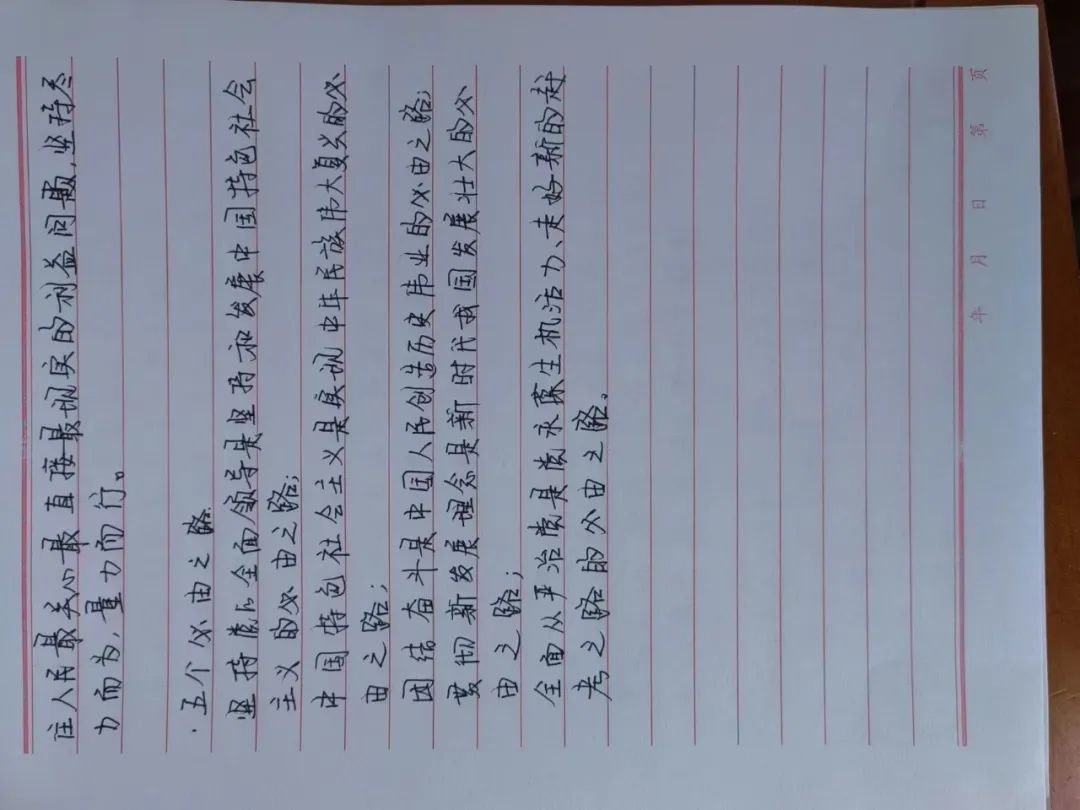 住人民最关心最直接最现实的利益问题,坚持尽
力而为,量力而行。
·五个必由之路
坚持党的全面领导是坚持和发展中国特色社会
主义的必由之路;
中国特色社会主义是实现中华民族伟大复兴的必
由之路;
团结奋斗是中国人民创造历史伟业的必由之路;
贯彻新发展理念是新时代我国发展壮大的必
由之路;
全面从严治党是党永葆生机活力、走好新的赶
考之路的必由之路。
年 月 日 第 页